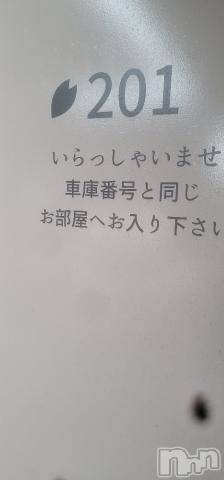 201
いらっしゃいませ
車庫番号と同じ
お部屋へお入り下さい
nmn